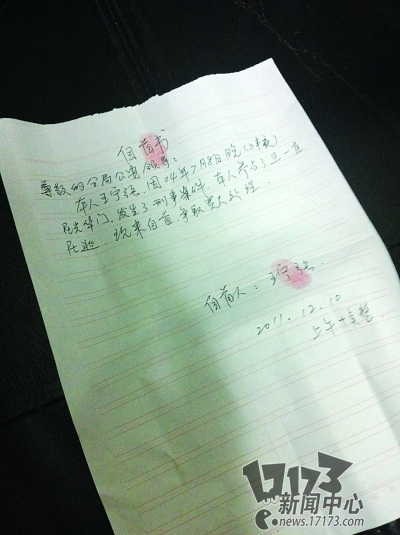 自首书
尊敬的分局公安领导:
本人王宁强,因04年7月8日晚(3春秋)
在先华门,发生了刑事案件,本人参与了且一直
在逃,现来自首争取宽大处理.
自首人:王宁强.
2011.12.10
上午十点整
17173
新闻中心
e.news.17173.com